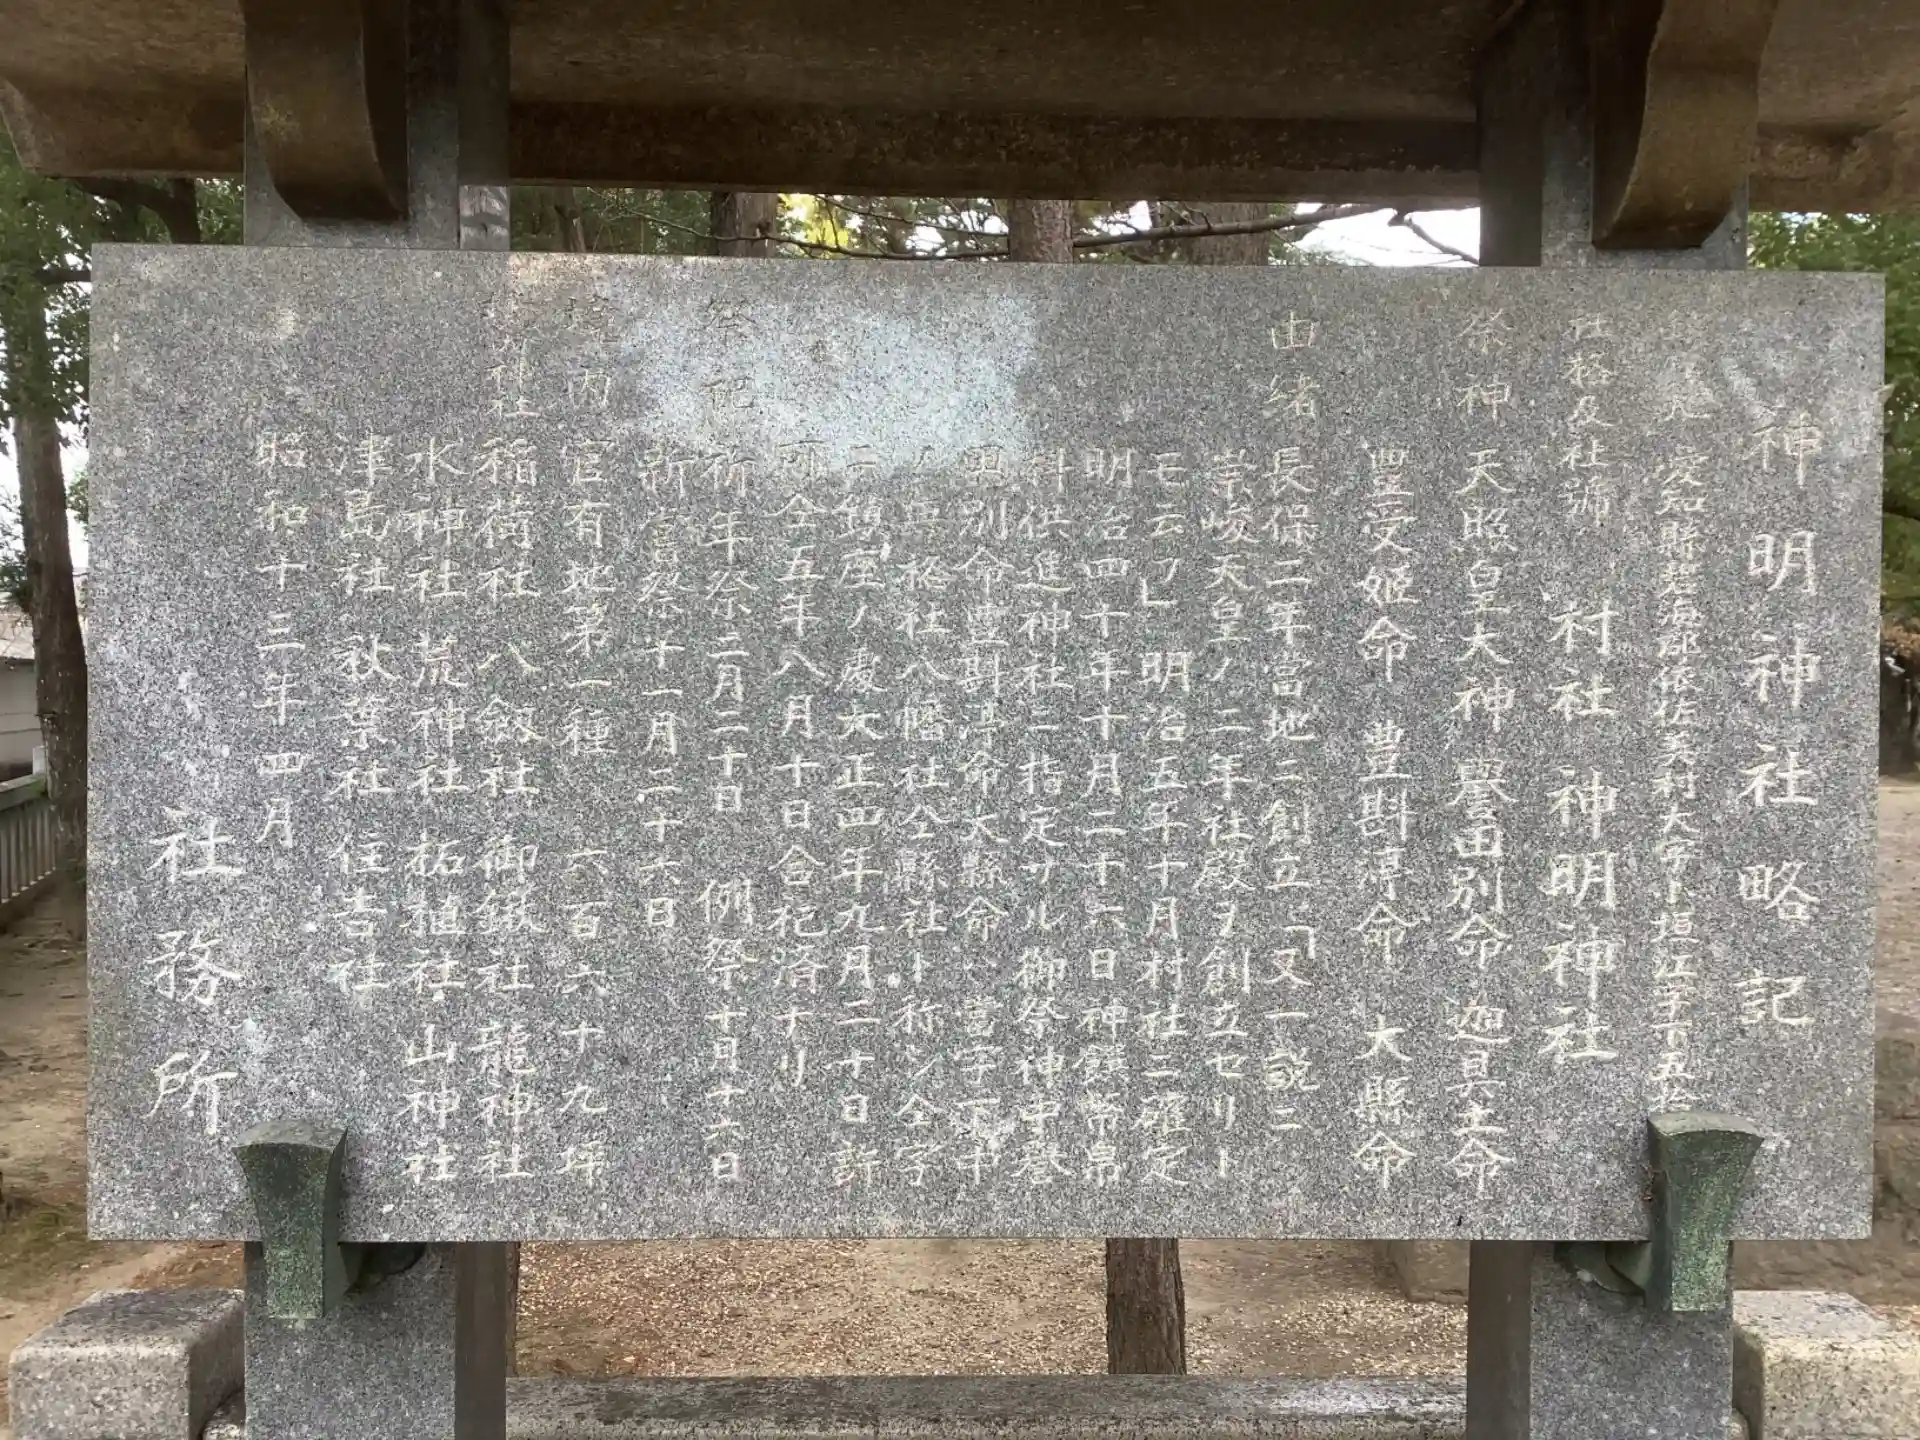 神明神社略記
愛知縣碧海郡依佐美村大字小垣江字下五拾
社格及社號 村社 神明神社
祭神 天照皇大神 譽田別命 迦具土命
豊受姬命 豊斟渟命 大縣命
由緒 長保二年當地ニ創立「又一説ニ
崇峻天皇ノ二年社殿ヲ創立セリート
モ云フ」明治五年十月村社ニ確定
明治四十年十月二十六日神饌幣帛
料供進神社ニ指定サル御祭神中譽
田別命豊斟渟命大縣命ハ當字下中
ノ無格社八幡社仝縣社ト称シ仝字
ニ鎮座ノ處大正四年九月二十日許
可仝五年八月十日合祀済ナリ
祭祀 祈年祭二月二十日 例祭十月十六日
新嘗祭十一月二十六日
境内 官有地第一種 六百六十九坪
神社 稲荷社 八劔社 御鍬社 龍神社
水神社 荒神社 柘植社 山神社
津島社 秋葉社 住吉社
昭和十三年四月
社務所